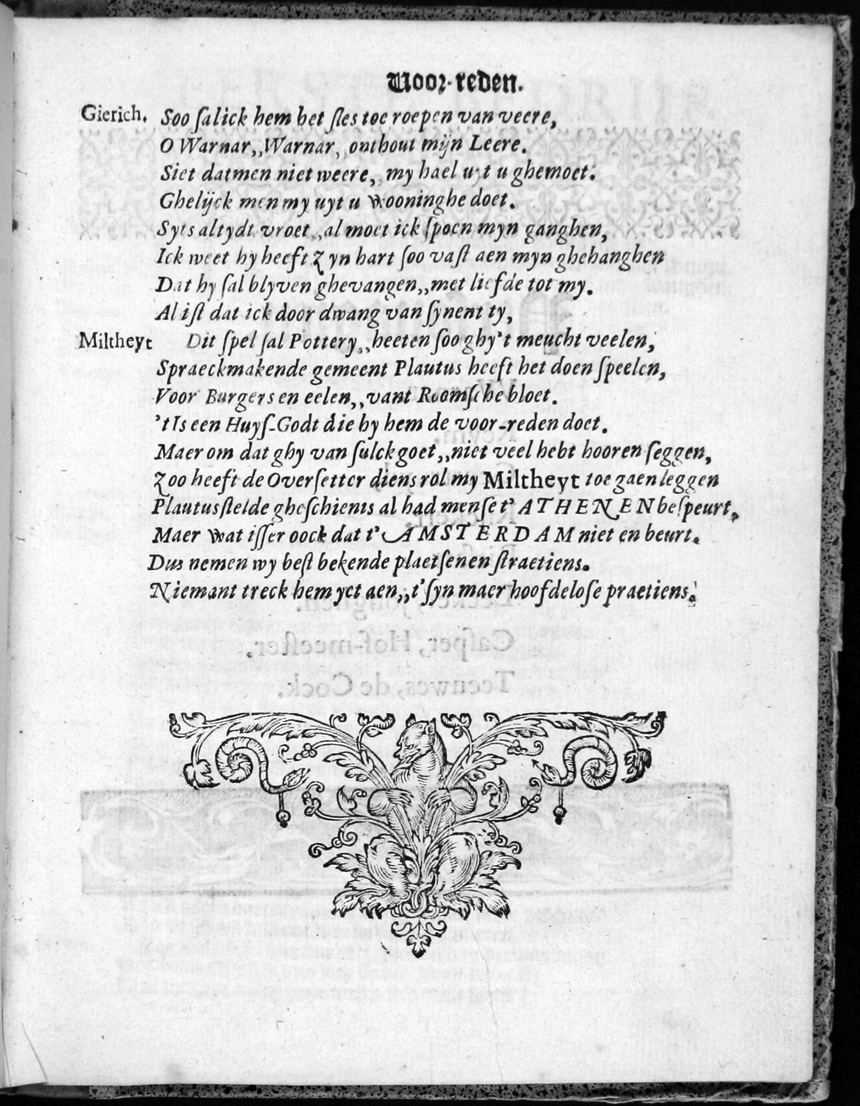 Voor-reden.
Gierich. Soo ſalick hem het ſles toe roepen van veere,
O Warnar,,Warnar,,onthout mijn Leere.
Siet datmen niet weere,,my hael uyt u ghemoet:
Ghelijck men my uyt u wooninghe doet.
Syts altydt vroet,,al moet ick ſpoen myn ganghen,
Ick weet hy heeft zyn hart ſoo vaſt aen myn ghehanghen
Dat hy ſal blyven ghevangen,,met liefde tot my.
Al iſt dat ick door dwang van ſynent ty,
Miltheyt Dit ſpel ſal Pottery,,heeten ſoo ghy't meucht veelen,
Spraeckmakende gemeent Plautus heeft het doen ſpeelen,
Voor Burgers en eelen,,vant Roomſche bloet.
't Is een Huyſ-Godt die hy hem de voor-reden doet.
Maer om dat ghy van ſulck goet,,niet veel hebt hooren ſeggen,
Zoo heeft de Overſetter diens rol my Miltheyt toe gaen leggen
Plautus ſtelde gheſchients al had menſe t' ATHENEN beſpeurt,
Maer wat iſſer oock dat t' AMSTERDAM niet en beurt.
Dus nemen wy beſt bekende plaetſen en ſtraetiens.
Niemant treck hem yet aen,,t'ſyn maer hoofdeloſe praetiens.
Caſper, Hof-meeſter.
Teeuwes, de Cock.